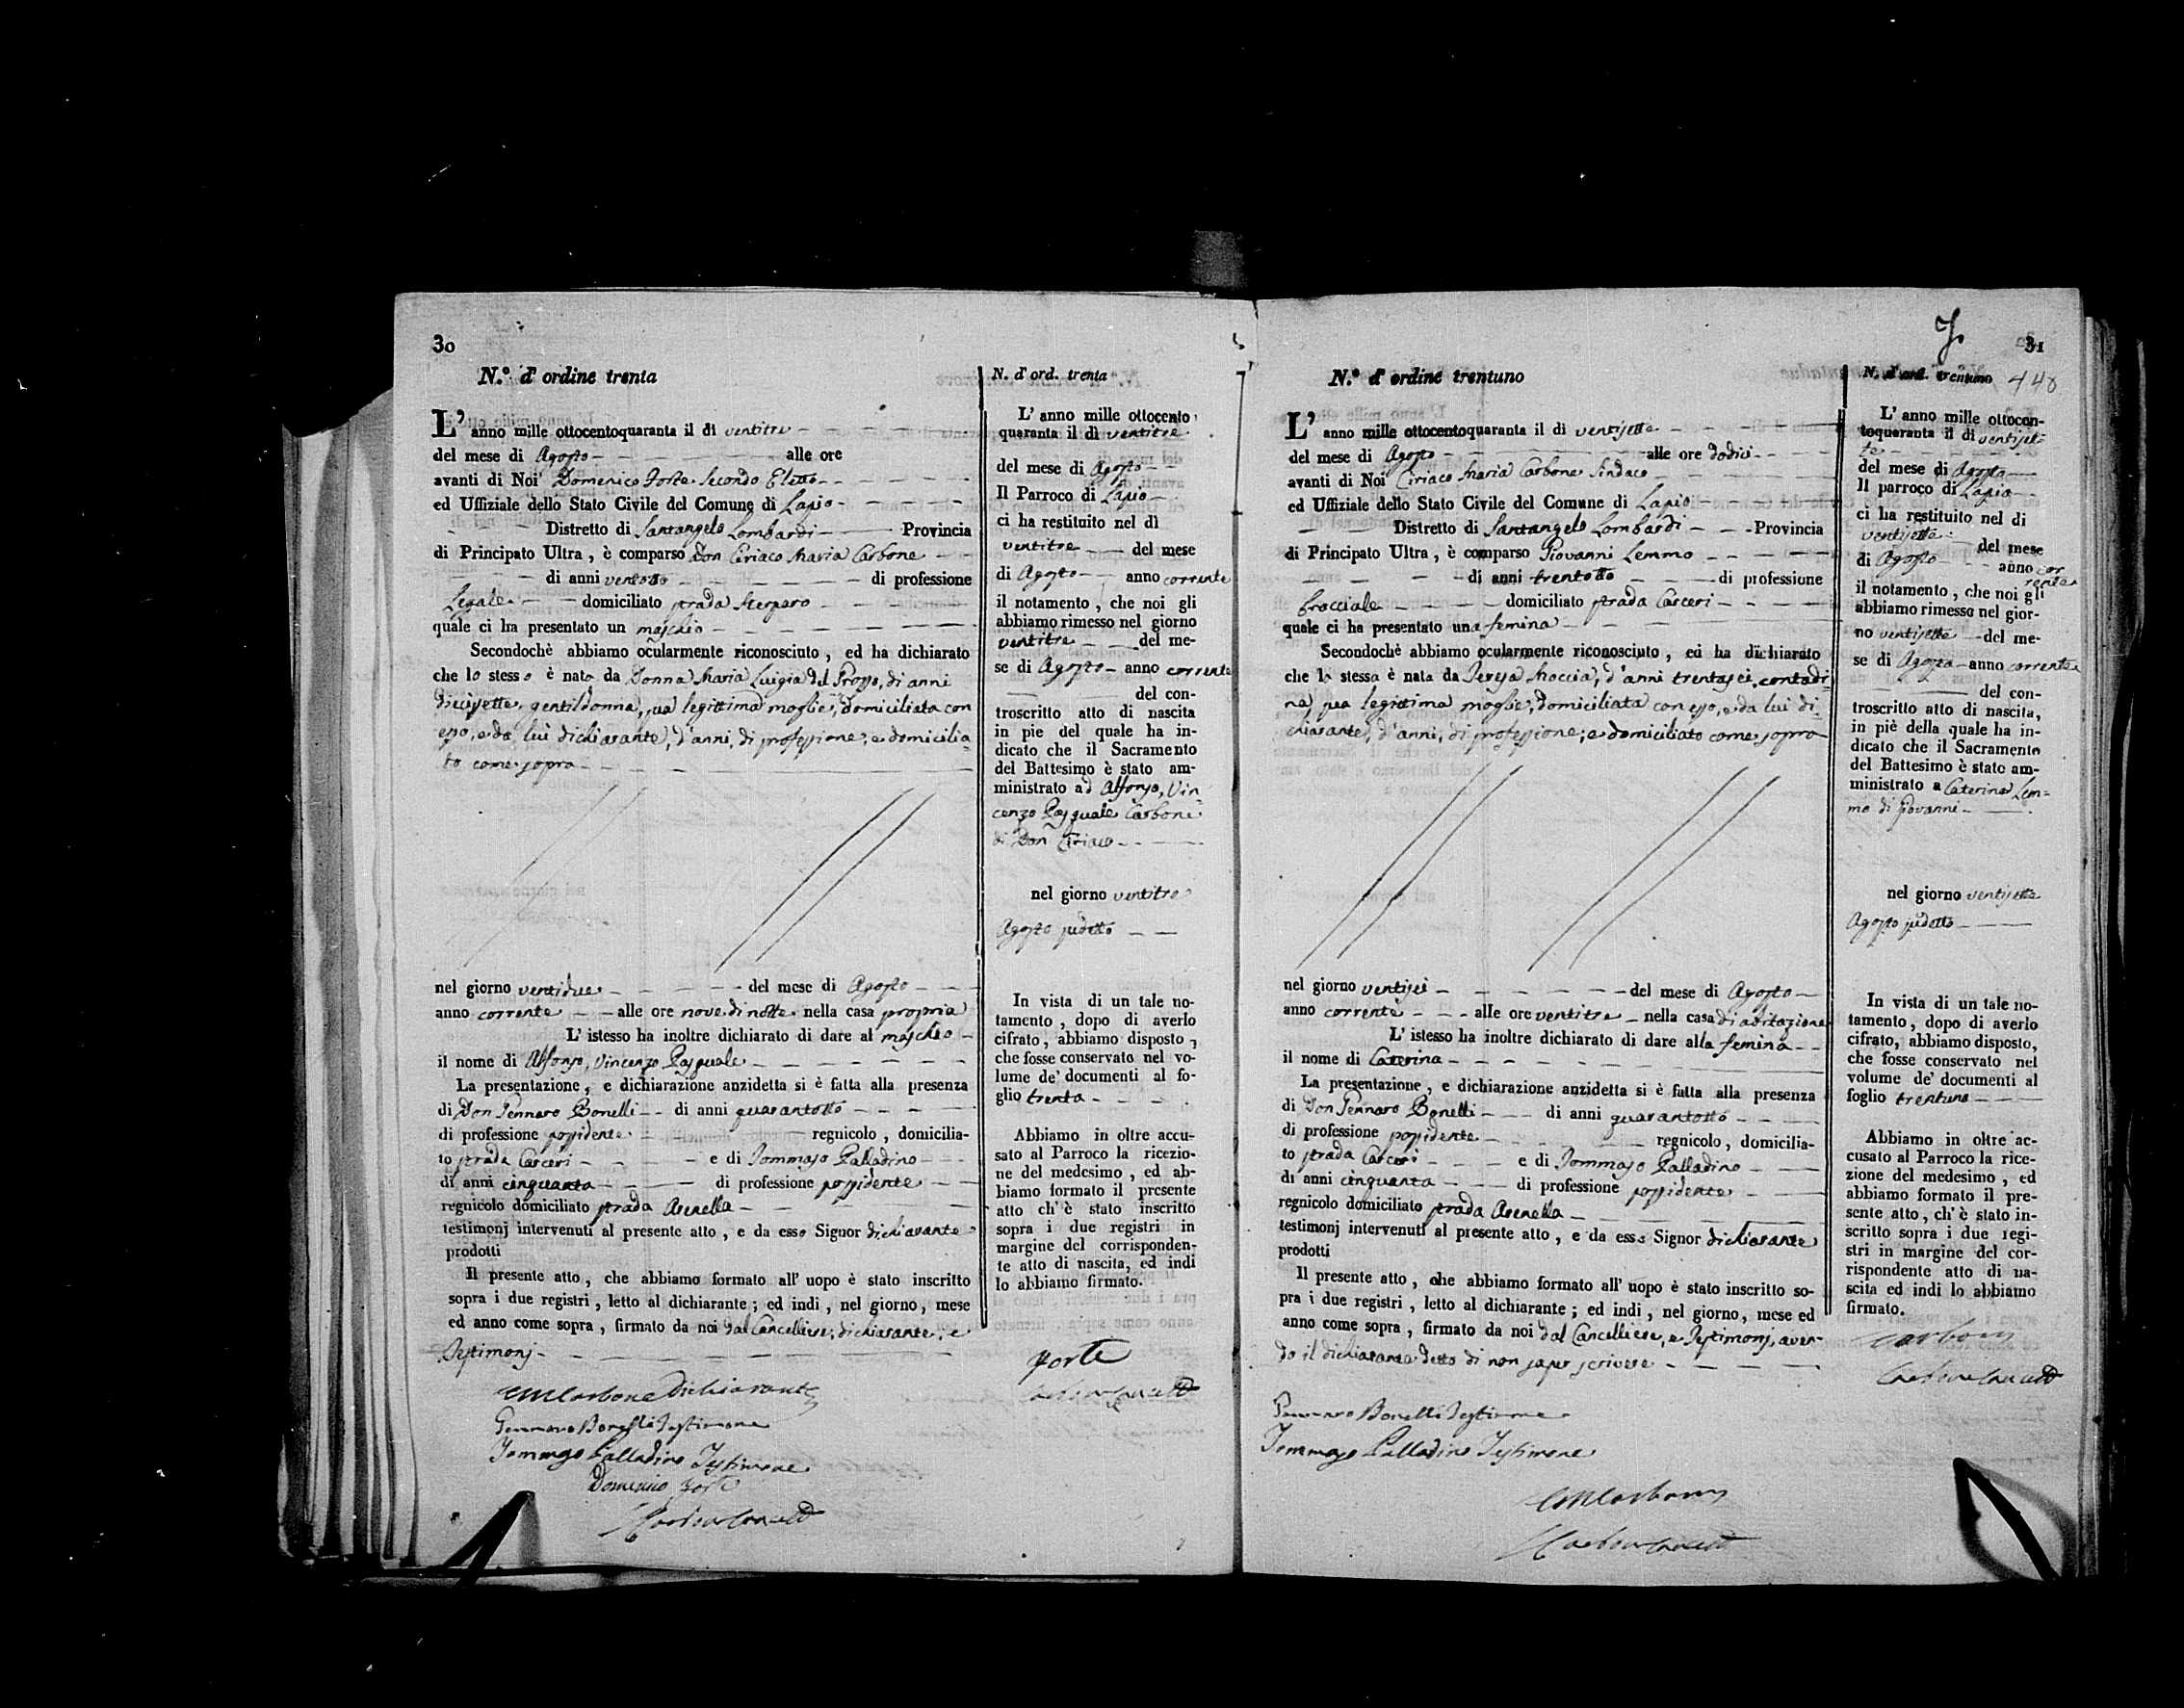 30
N.º d' ordine trenta
L' anno mille ottocentoquaranta il dì ventitre
del mese di Agosto alle ore
avanti di Noi Domenico Forte Secondo Eletto
ed Uffiziale dello Stato Civile del Comune di Lapio
Distretto di Santangelo Lombardi Provincia
di Principato Ultra, è comparso Don Ciriaco Maria Carbone
di anni ventotto di professione
Legale domiciliato strada
quale ci ha presentato un maschio
Secondochè abbiamo ocularmente riconosciuto, ed ha dichiarato
che lo stesso è nato da Donna Maria Luigia del Grosso, di anni
diecisette, gentildonna, sua legittima moglie, domiciliata con
esso, e da lui dichiarante, d'anni, di professione, e domicilia-
to come sopra
nel giorno ventidue del mese di Agosto
anno corrente alle ore nove di notte nella casa propria
L' istesso ha inoltre dichiarato di dare al maschio
il nome di Alfonso, Vincenzo Pasquale
La presentazione, e dichiarazione anzidetta si è fatta alla presenza
di Don Gennaro Bonelli di anni quarantotto
di professione possidente regnicolo, domicilia-
to strada Carceri e di Tommaso Palladino
di anni cinquanta di professione possidente
regnicolo domiciliato strada Arenella
testimonj intervenuti al presente atto, e da esso Signor dichiarante
prodotti
Il presente atto, che abbiamo formato all' uopo è stato inscritto
sopra i due registri, letto al dichiarante; ed indi, nel giorno, mese
ed anno come sopra, firmato da noi dal Cancelliere, dichiarante, e
Testimonj
CMCarbone dichiarante
Gennaro Bonelli Testimone
Tommaso Palladino Testimone
Domenico Forte
Carbone
N. d' ord. trenta
L' anno mille ottocento
quaranta il dì ventitre
del mese di Agosto
Il Parroco di Lapio
ci ha restituito nel dì
ventitre del mese
di Agosto anno corrente
il notamento, che noi gli
abbiamo rimesso nel giorno
ventitre del me-
se di Agosto anno corrente
del con-
troscritto atto di nascita
in pie del quale ha in-
dicato che il Sacramento
del Battesimo è stato am-
ministrato ad Alfonso, Vin-
cenzo Pasquale Carbone
di Don Ciriaco
nel giorno ventitre
Agosto sudetto
In vista di un tale no-
tamento, dopo di averlo
cifrato, abbiamo disposto,
che fosse conservato nel vo-
lume de' documenti al fo-
glio trenta
Abbiamo in oltre accu-
sato al Parroco la ricezio-
ne del medesimo, ed ab-
biamo formato il presente
atto ch' è stato inscritto
sopra i due registri in
margine del corrisponden-
te atto di nascita, ed indi
lo abbiamo firmato.
Forte
Carbone
31
N.º d' ordine trentuno
L' anno mille ottocentoquaranta il dì ventisette
del mese di Agosto alle ore dodici
avanti di Noi Ciriaco Maria Carbone Sindaco
ed Uffiziale dello Stato Civile del Comune di Lapio
Distretto di Santangelo Lombardi Provincia
di Principato Ultra, è comparso Giovanni Lemmo
di anni trentotto di professione
bracciale domiciliato strada Carceri
quale ci ha presentato una femina
Secondochè abbiamo ocularmente riconosciuto, ed ha dichiarato
che la stessa è nata da Teresa Moccia, d'anni trentasei, contadi-
na sua legittima moglie, domiciliata con esso, e da lui di-
chiarante, d'anni, di professione, e domiciliato come sopra
nel giorno ventisei del mese di Agosto
anno corrente alle ore ventitre nella casa di abitazione
L' istesso ha inoltre dichiarato di dare alla femina
il nome di Caterina
La presentazione, e dichiarazione anzidetta si è fatta alla presenza
di Don Gennaro Bonelli di anni quarantotto
di professione possidente regnicolo, domicilia-
to strada Carceri e di Tommaso Palladino
di anni cinquanta di professione possidente
regnicolo domiciliato strada Arenella
testimonj intervenuti al presente atto, e da esso Signor dichiarante
prodotti
Il presente atto, che abbiamo formato all' uopo è stato inscritto so-
pra i due registri, letto al dichiarante; ed indi, nel giorno, mese ed
anno come sopra, firmato da noi dal Cancelliere, e Testimonj, aven-
do il dichiarante detto di non saper scrivere
Gennaro Bonelli Testimone
Tommaso Palladino Testimone
CMCarbone
Carbone
N. d' ord. trentuno 448
L' anno mille ottocen-
toquaranta il dì ventiset-
te
del mese di Agosto
Il parroco di Lapio
ci ha restituito nel dì
ventisette del mese
di Agosto anno cor
rente
il notamento, che noi gli
abbiamo rimesso nel gior-
no ventisette del me-
se di Agosto anno corrente
del con-
troscritto atto di nascita,
in piè della quale ha in-
dicato che il Sacramento
del Battesimo è stato am-
ministrato a Caterina Lem-
mo di Giovanni
nel giorno ventisette
Agosto sudetto
In vista di un tale no-
tamento, dopo di averlo
cifrato, abbiamo disposto,
che fosse conservato nel
volume de' documenti al
foglio trentuno
Abbiamo in oltre ac-
cusato al Parroco la rice-
zione del medesimo, ed
abbiamo formato il pre-
sente atto, ch' è stato in-
scritto sopra i due regi-
stri in margine del cor-
rispondente atto di na-
scita ed indi lo abbiamo
firmato.
Carbone
Carbone